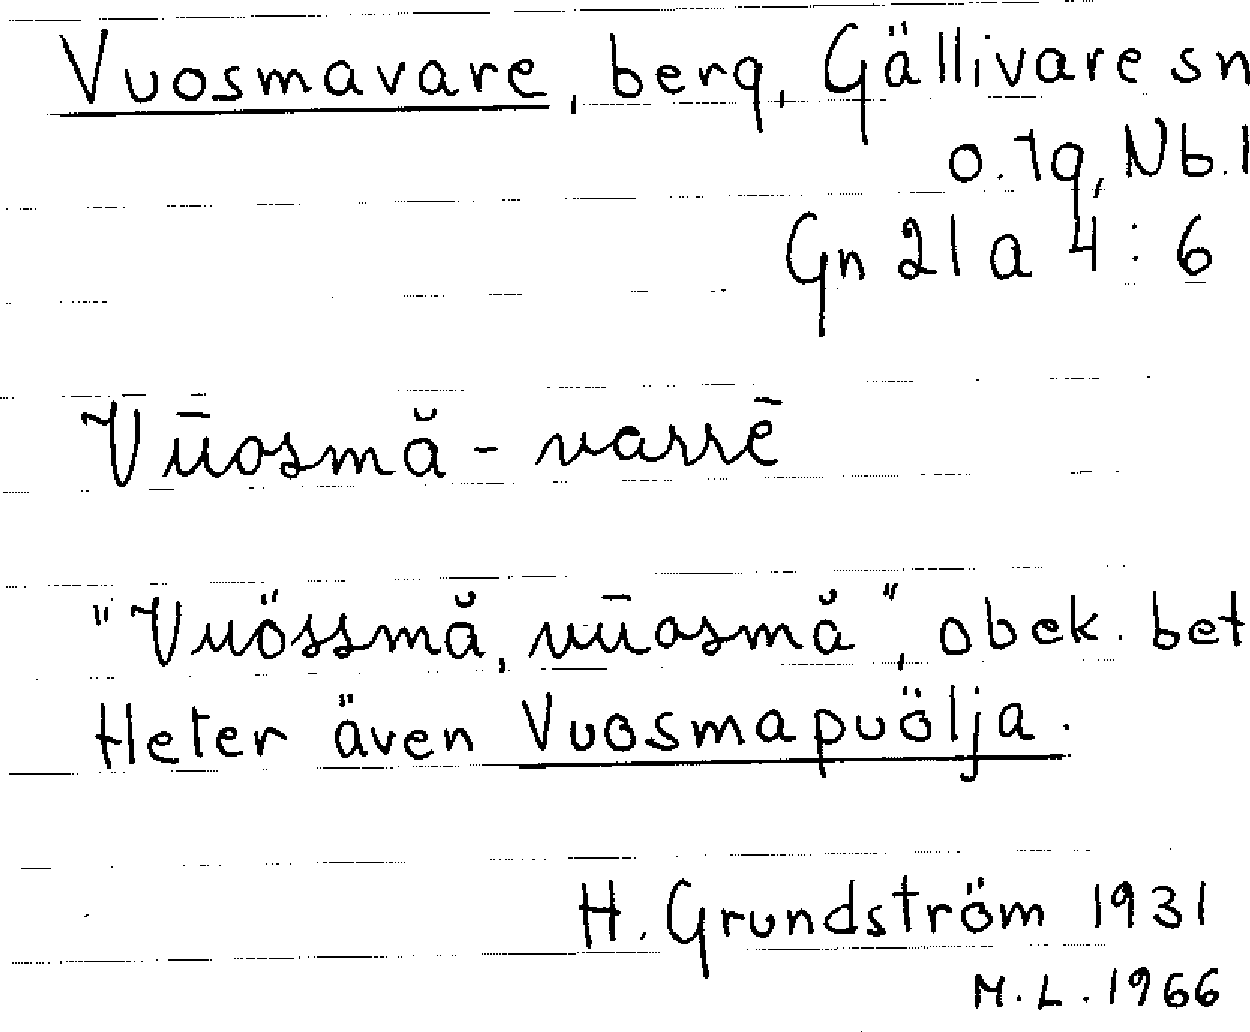 Vuosmavare, berg, Gällivare sn
o. tg, Nb. l
Gn 21 a 4 : 6
Vūosmă - varrē
"Vuössmă, vūosmă", obek. bet
Heter även Vuosmapuölja.
H. Grundström 1931
M. L. 1966